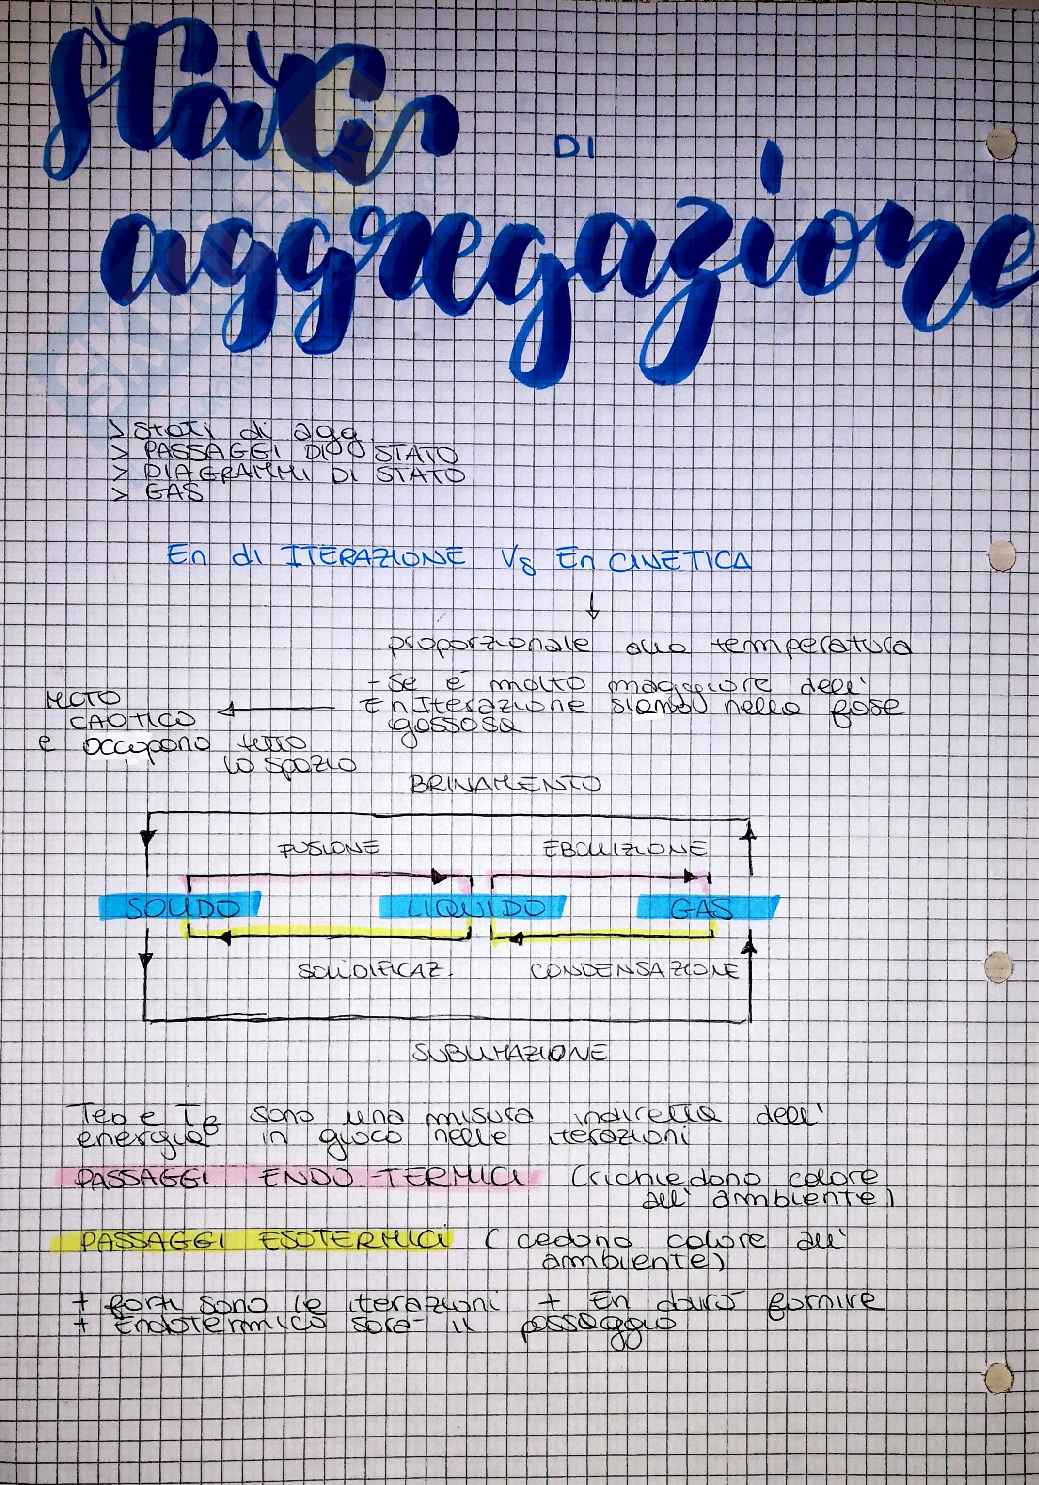 Stati
DI
aggregazione
> Stati di agg.
> PASSAGGI DI STATO
> DIAGRAMMI DI STATO
> GAS
En di ITERAZIONE Vs En CINETICA
proporzionale alla temperatura
- Se è molto maggiore dell'
En Iterazione siamo nella fase
gassosa
MOTO
CAOTICO
e occupano tutto
lo spazio
BRINAMENTO
FUSIONE
EBOLLIZIONE
SOLIDO
LIQUIDO
GAS
SOLIDIFICAZ.
CONDENSAZIONE
SUBLIMAZIONE
Teb e sono una misura indiretta dell'
energia in gioco nelle iterazioni
PASSAGGI ENDO-TERMICI (richiedono calore
all'ambiente)
PASSAGGI ESOTERMICI (cedono calore all'
ambiente)
+ forti sono le iterazioni + En dovrò fornire
+ Endotermico sarà il passaggio